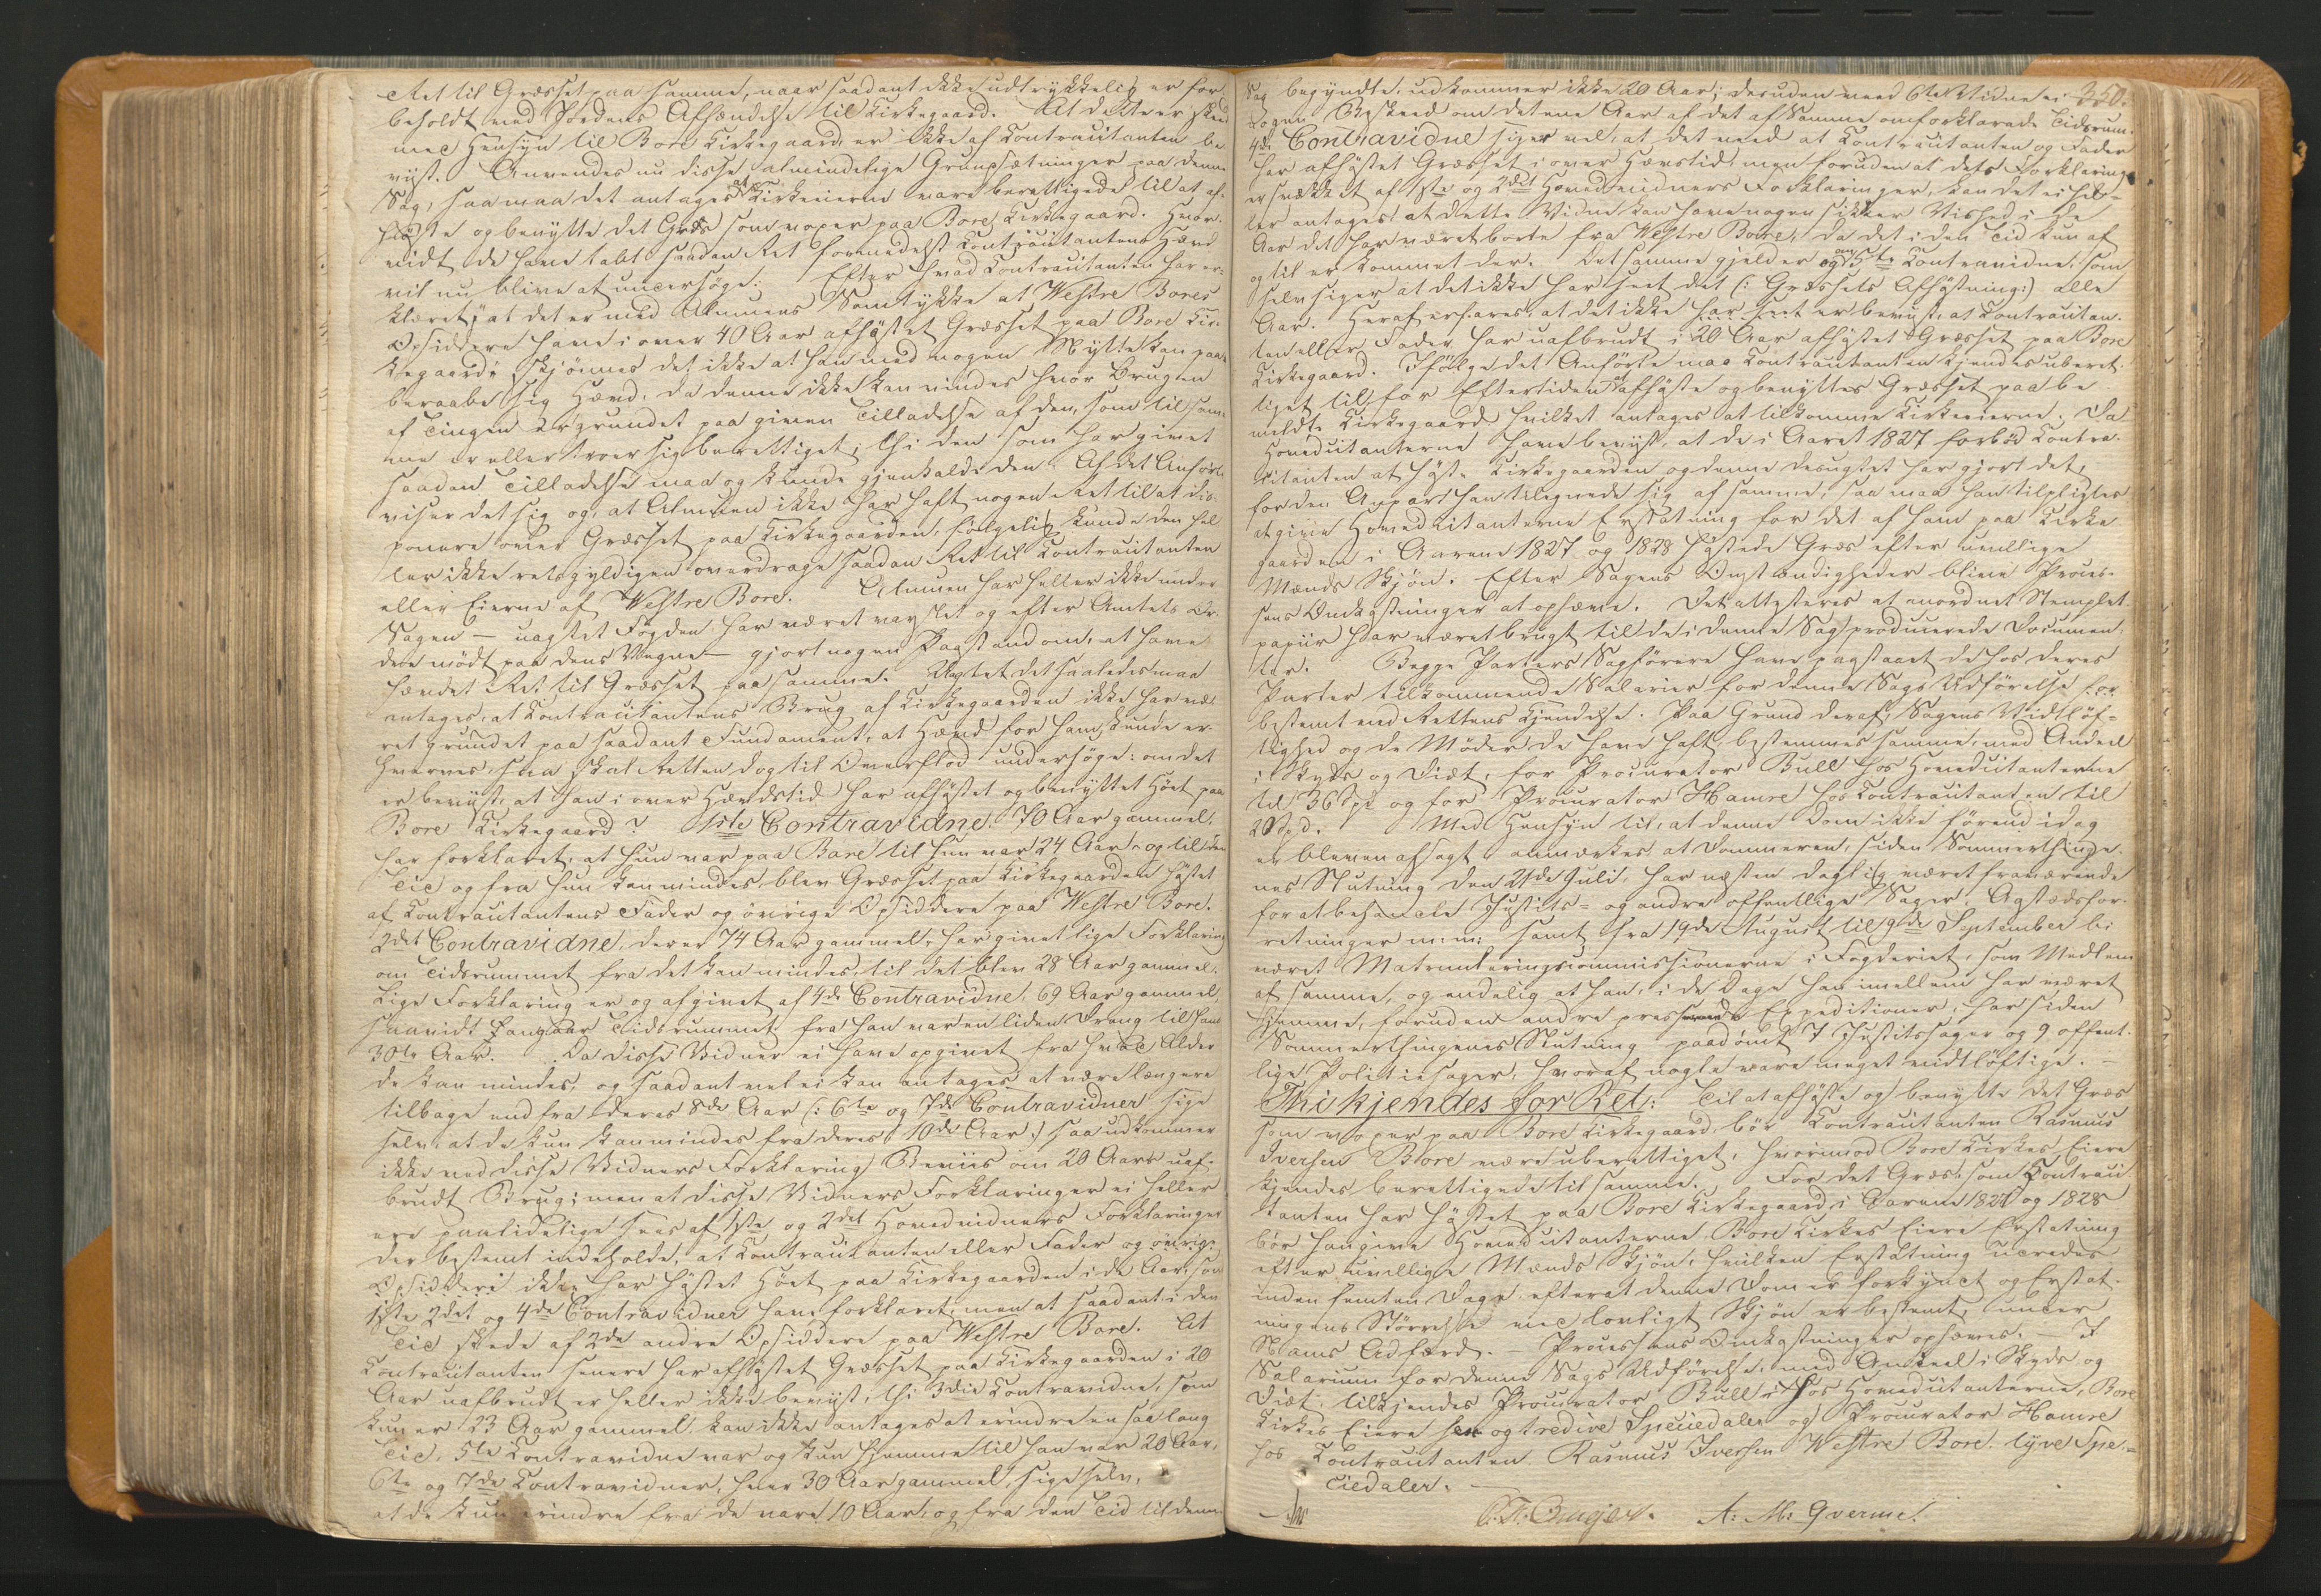 Ret til Græsset paa samme, naar saadant ikke udtrykkelig er for-
beholdt med Jordens Afhændelse til Kirkegaard. At dette er skeed
med Hensyn til Bore Kirkegaard, er ikke af Contracitanten be-
viist. Anvendes nu disse almindelige Grundsætninger paa denne
Sag, saa maa det antages at Kirkeeierne vare berettigede til at af-
høste og benytte det Græs som voxer paa Bore Kirkegaard. Hvor-
vidt de have tabt saadan Ret formedelst Contracitantens Hævd
vil nu blive at undersøge. Efter hvad Contracitanten har er-
klæret, at det er med Almuens Samtykke at Westre Bores
Opsiddere have i over 40 Aar afhøstet Græsset paa Bore Kir-
kegaard, skjønnes det ikke at han med nogen Nytte kan paa-
beraabe sig Hævd, da denne ikke kan vindes hvor Brugen
af Tingen er grundet paa given Tilladelse af den, som til sam-
me er eller troer sig berettiget; thi den som har givet
saadan Tilladelse maa og kunde gjenkalde den. Af det Anførte
viser det sig og, at Almuen ikke har haft nogen Ret til at dis-
ponere over Græsset paa Kirkegaarden, følgelig kunde den hel-
ler ikke retsgyldigen overdrage saadan Ret til Contracitanten
eller Eierne af Westre Bore. Almuen har heller ikke under
Sagen — uagtet Fogden har været varslet og efter Amtets Or-
dre mødt paa dens Vegne — gjort nogen Paastand om, at have
hændet Ret til Græsset paa samme. Uagtet det saaledes maa
antages, at Contracitantens Brug af Kirkegaarden ikke har væ-
ret grundet paa saadant Fundament, at Hævd for ham kunde er-
hverves, saa skal Retten dog til Overflod undersøge: om det
er beviist, at han i over Hævdstid har afhøstet og benyttet Høet paa
Bore Kirkegaard? 1ste Contravidne, 70 Aar gammel,
har forklaret, at hun var paa Bore til hun var 24 Aar, og til den
Tid og fra hun kan mindes, blev Græsset paa Kirkegaarden høstet
af Contracitantens Fader og øvrige Opsiddere paa Westre Bore.
2det Contravidne, der er 74 Aar gammel, har givet lige Forklaring
om Tidsrummet fra det kan mindes, til det blev 28 Aar gammel.
Lige Forklaring er og afgivet af 4de Contravidne, 69 Aar gammel,
saavidt angaar Tidsrummet fra han var en liden Dreng til hans
30te Aar. Da disse Vidner ei have opgivet fra hvad Alder
de kan mindes, og saadant vel ei kan antages at være længere
tilbage end fra deres 8de Aar (: 6te og 7de Contravidner sige
selv, at de kun kan mindes fra deres 10de Aar :) saa udkommer
ikke ved disse Vidners Forklaring Beviis om 20 Aars uaf-
brudt Brug; men at disse Vidners Forklaringer ei heller
ere paalidelige sees af 1ste og 2det Hovedvidners Forklaringer
der bestemt indeholde, at Contracitanten eller Fader og øvrige
Opsiddere ikke har høstet Høet paa Kirkegaarden i de Aar, som
1ste 2det og 4de Contravidner have forklaret, men at saadant i den
Tid skede af 2de andre Opsiddere paa Westre Bore. At
Contracitanten senere har afhøstet Græsset paa Kirkegaarden i 20
Aar uafbrudt er heller ikke beviist, thi 3die Contravidne, som
kun er 23 Aar gammel kan ikke antages at erindre en saa lang
Tid, 5te Contravidne var og kun hjemme til han var 20 Aar,
6te og 7de Contravidner, hver 30 Aar gammel, sige selv,
at de kun erindre fra de vare 10 Aar, og fra den Tid til denne
350.
Sag begyndte, udkommer ikke 20 Aar; desuden veed 6te Vidne ei
nogen Besked om det ene Aar af det af samme omforklarede Tidsrum.
4de Contravidne siger vel, at det veed at Contracitanten og Fader
har afhøstet Græsset i over Hævdstid, men foruden at dets Forklaring
er svækket af 1ste og 2det Hovedvidners Forklaringer, kan det ei hel-
ler antages at dette Vidne kan have nogen sikker Vished i de
Aar det har været borte fra Westre Bore, da det i den Tid kun af
og til er kommet der. Det samme gjelder og om 5te Contravidne, som
selv siger at det ikke har seet det (: Græssets Afhøstning :) alle
Aar. Heraf erfares, at det ikke er beviist, at Contracitan-
ten eller Fader har uafbrudt i 20 Aar afhøstet Græsset paa Bore
Kirkegaard. Ifølge det Anførte maa Contracitanten kjendes uberet-
tiget til for Eftertiden at afhøste og benytte Græsset paa be-
meldte Kirkegaard hvilket antages at tilkomme Kirkeeierne. Da
Hovedcitanterne have beviist, at de i Aaret 1827 forbød Contra-
citanten at høste Kirkegaarden og denne desuagtet har gjort det,
for den Anpart han tilegnede sig af samme, saa maa han tilpligtes
at give Hovedcitanterne Erstatning for det af ham paa Kirke-
gaarden i Aarene 1827 og 1828 høstede Græs efter uvillige
Mænds Skjøn. Efter Sagens Omstændigheder blive Proces-
sens Omkostninger at ophæve. Det attesteres at anordnet Stemplet-
papiir har været brugt til de i denne Sag producerede Documen-
ter. Begge Parters Sagførere have paastaaet de hos deres
Parter tilkommende Salarier for denne Sags Udførelse
bestemt ved Rettens Kjendelse. Paa Grund deraf, Sagens Vidtløf-
tighed og de Møder de have haft, bestemmes samme, med Andeel
i Skyds og Diæt, for Procurator Bull hos Hovedcitanterne
til 36 Spd og for Procurator Hamre hos Contracitanten til
20 Spd. Med Hensyn til, at denne Dom ikke førend idag
er bleven afsagt anmærkes, at Dommeren, siden Sommerthinge-
nes Slutning den 21de Juli, har næsten daglig været fraværende
for at behandle Justits- og andre offentlige Sager, Aastedsfor-
retninger m: m: samt fra 19de August til 9de September bi-
været Matruleringscommissionerne i Fogderiet, som Medlem
af samme, og endelig at han, i de Dage han imellem har været
hjemme, foruden andre Expeditioner, har siden
Sommerthingenes Slutning paadømt 7 Justitssager og 9 offent-
lige Politiesager, hvoraf nogle vare meget vidtløftige. —
Thi kjendes for Ret: Til at afhøste og benytte det Græs
som voxer paa Bore Kirkegaard, bør Contracitanten Rasmus
Iversen Bore være uberettiget, hvorimod Bore Kirkes Eiere
kjendes berettigede til samme. For det Græs, som Contraci-
tanten har høstet paa Bore Kirkegaard i Aarene 1827 og 1828
bør han give Hovedcitanterne Bore Kirkes Eiere Erstatning
efter uvillige Mænds Skjøn, hvilken Erstatning udredes
inden femten Dage efterat denne Dom er forkyndt og Erstat-
ningens Størrelse ved lovligt Skjøn er bestemt, under
Nams Adfærd. — Processens Omkostninger ophæves. — I
Salarium for denne Sags Udførelse, med Andeel i Skyds og
Diæt, tilkjendes Procurator Bull hos Hovedcitanterne, Bore
Kirkes Eiere sex og tredive Speciedaler og Procurator Hamre
hos Contracitanten Rasmus Iversen Westre Bore, tyve Spe-
ciedaler.
A: M: Qverme.